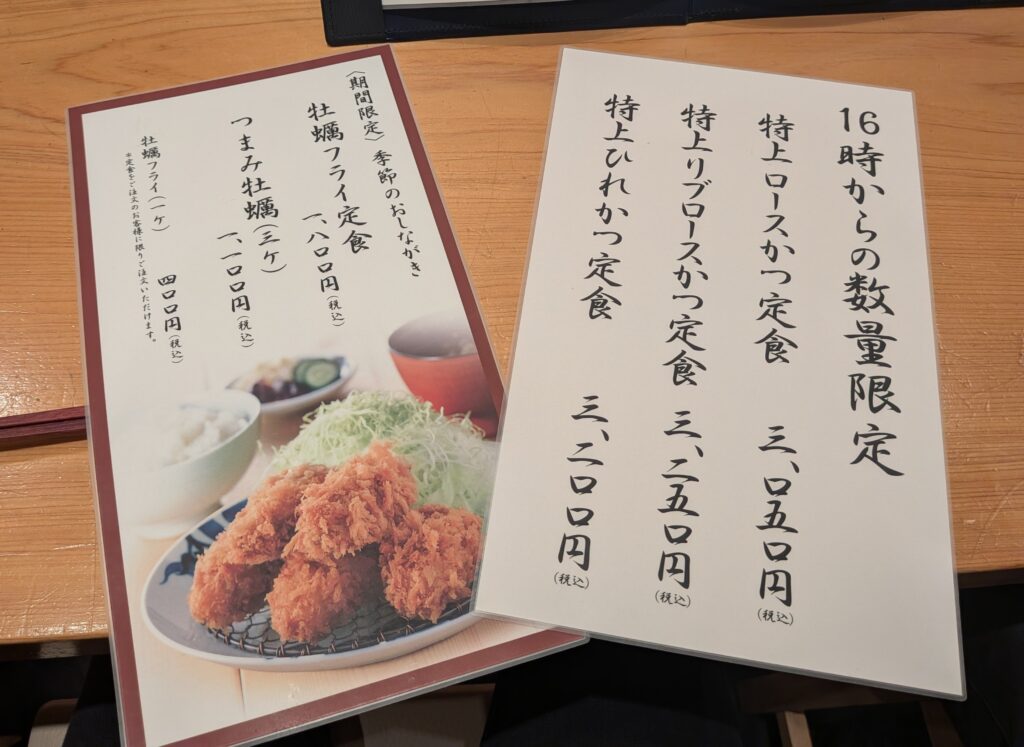 〈期間限定〉季節のおしながき
牡蠣フライ定食
一、八〇〇円(税込)
つまみ牡蠣(三ケ)
一、一〇〇円(税込)
牡蠣フライ(一ケ)
四〇〇円(税込)
*定食をご注文のお客様に限りご注文いただけます。
16時からの数量限定
特上ロースかつ定食 三、〇五〇円(税込)
特上リブロースかつ定食 三、二五〇円(税込)
特上ひれかつ定食 三、二〇〇円(税込)